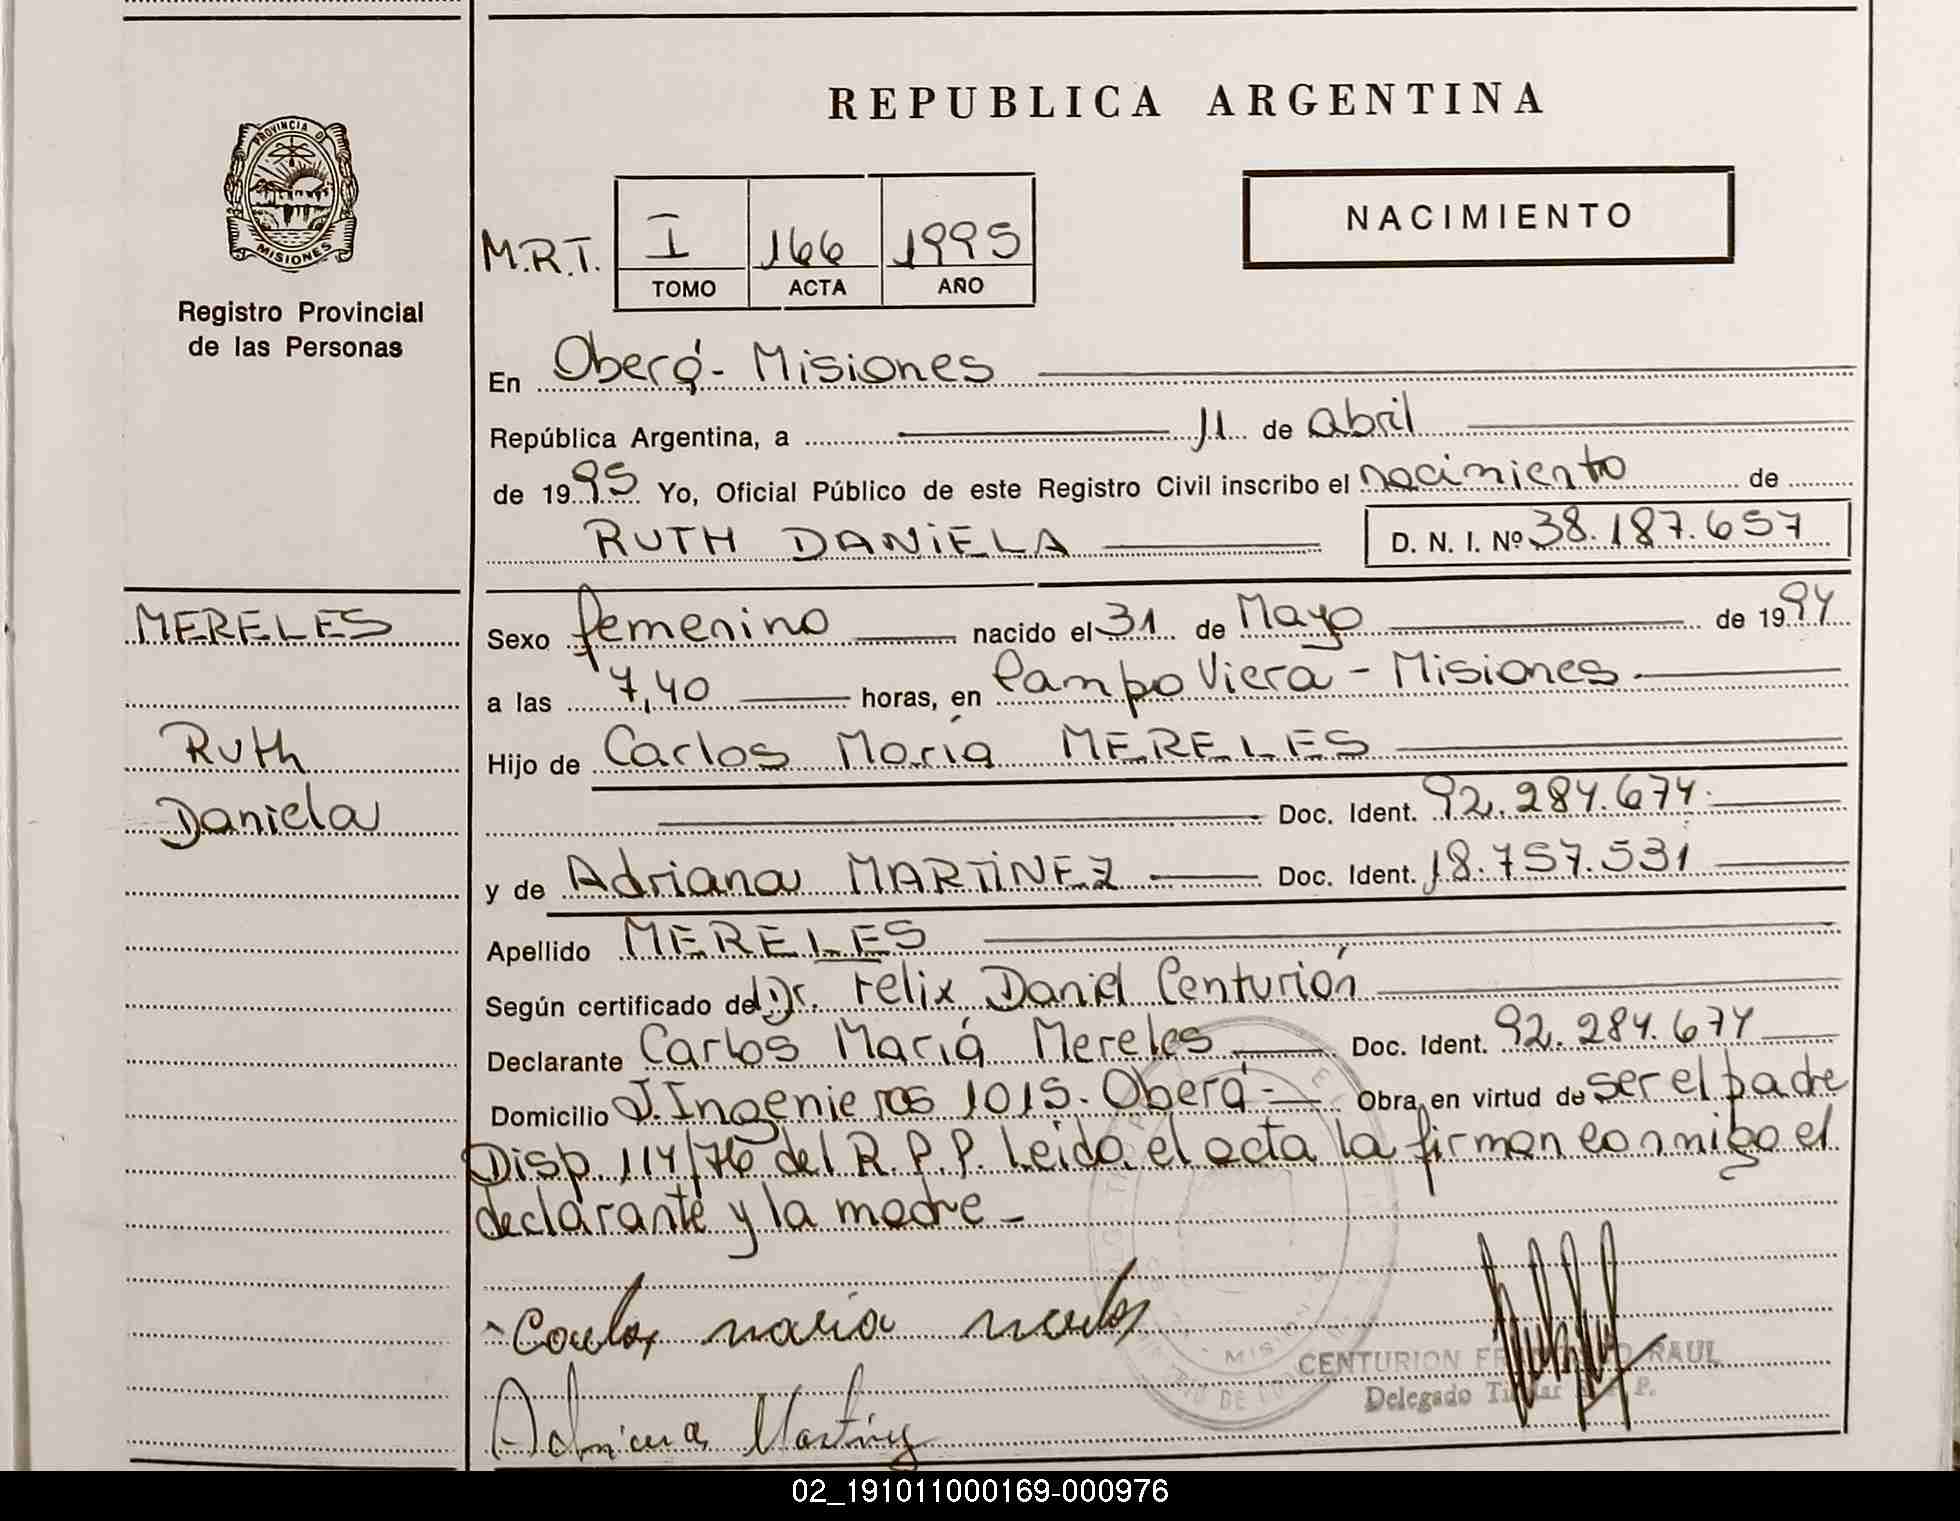 REPUBLICA ARGENTINA
PROVINCIA D
MISIONES
Registro Provincial
de las Personas
NACIMIENTO
M.R.T. I 166 1995
TOMO ACTA AÑO
En Oberá - Misiones
República Argentina, a 11 de abril
de 1995 Yo, Oficial Público de este Registro Civil inscribo el nacimiento de
RUTH DANIELA D. N. I. Nº 38.187.657
MERELES
Sexo femenino nacido el 31 de Mayo de 1994
a las 7,40 horas, en Campo Viera - Misiones
Ruth
Daniela
Hijo de Carlos María MERELES
Doc. Ident. 92.284.674
y de Adriana MARTINEZ Doc. Ident. 18.757.531
Apellido MERELES
Según certificado del Dr. Felix Daniel Centurión
Declarante Carlos María Mereles Doc. Ident. 92.284.674
Domicilio J. Ingenieros 1015. Oberá - Obra en virtud de ser el padre
Disp. 114/76 del R.P.P. Leída el acta la firman conmigo el
declarante y la madre -
Carlos maria mereles
CENTURION RAUL
Delegado
Adriana Martinez
02_191011000169-000976